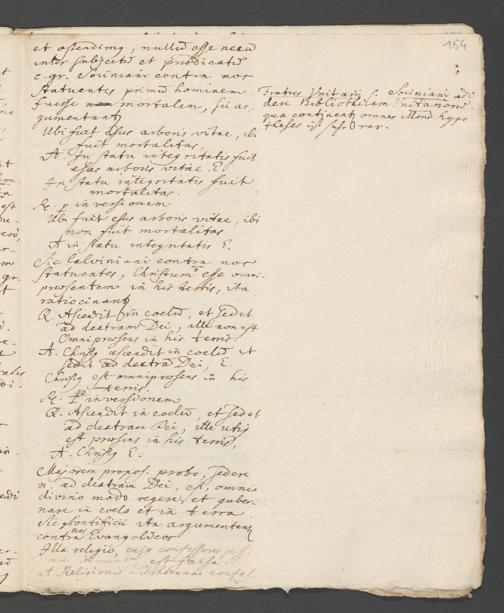 154
et ostendimg, nullu esse nexu
inter subjectu et praedicatu
e. gr. Sociniani contra nos
statuentes primu hominem
fuisse mortalem, sic ar-
gumentant
Ubi fuit esus arboris vitae, ibi
fuit mortalitas.
A. In statu integritatis fuit
esus arboris vitae. E.
In statu integritatis fuit
mortalitas.
R. p inversionem
Ubi fuit esus arboris vitae, ibi
non fuit mortalitas
A in statu integritatis E.
Sic Calviniani contra nos
statuentes, Christum esse omni-
praesentem in his terris, ita
ratiocinant
Q. Ascendit in coelu, et sedet
ad dextram Dei, ille non est
Omnipraesens in his terris
A. Christg ascendit in coelu et
sedet ad dextra Dei, E
Christg est omnipraesens in his
terris.
R. P inversionem
Q. Ascendit in coelu, et sedet
ad dextram Dei, ille utiq
est praesens in his terris,
A. Christg E.
Majorem propos. probo, sedere
n. ad dextram Dei, est, omnia
divino modo regere et guber-
nare in coelo et in terra.
Sic pontificii ita argumentant
contra nos Evangelicos
Illa religio, cujg confessores
est falsa.
A. Religionis Lutheranae confes.
Fratres Unitarii s. Sociniani
dere Bibliothecam Unitariorum
qua continent omnes illorum hypo
theses rar.